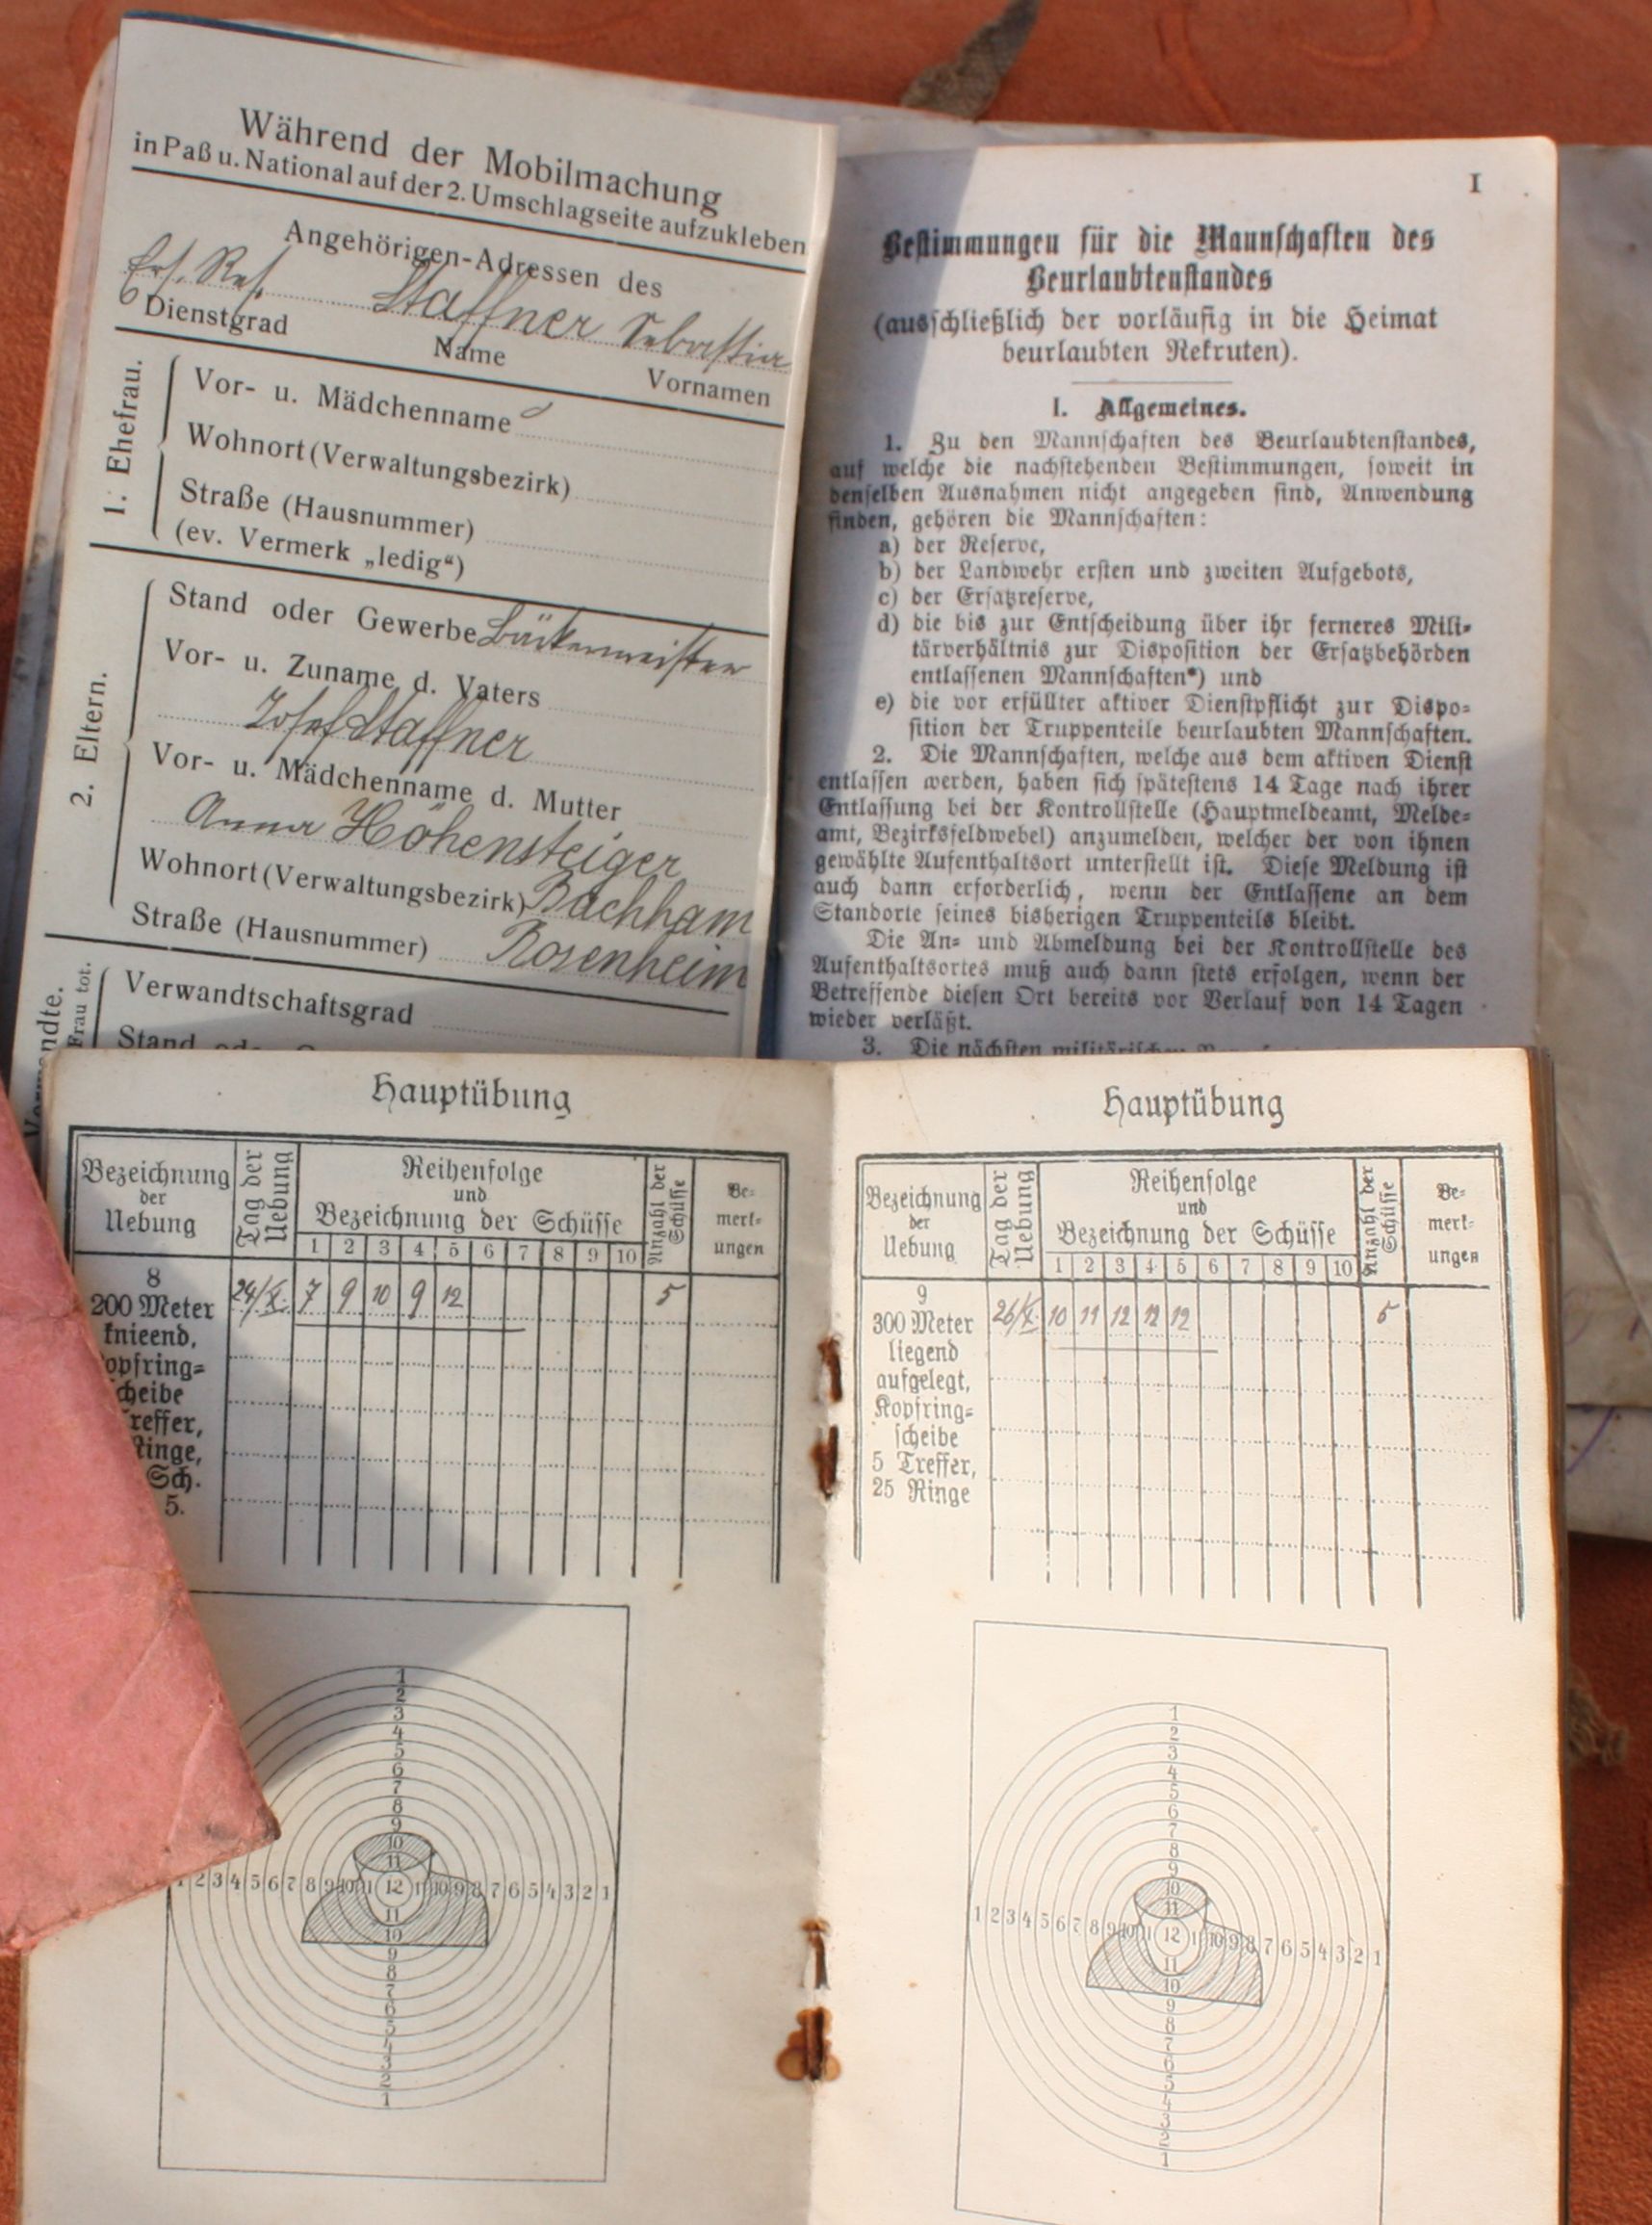 Während der Mobilmachung
in Paß u. National auf der 2. Umschlagseite aufzukleben
Angehörigen-Adressen des
Ers. Res. Staffner Sebastian
Dienstgrad Name Vornamen
1. Ehefrau.
Vor- u. Mädchenname
Wohnort (Verwaltungsbezirk)
Straße (Hausnummer)
(ev. Vermerk „ledig“)
2. Eltern.
Stand oder Gewerbe Bäckermeister
Vor- u. Zuname d. Vaters
Josef Staffner
Vor- u. Mädchenname d. Mutter
Anna Höhensteiger
Wohnort (Verwaltungsbezirk) Bachham
Straße (Hausnummer) Rosenheim
Frau tot.
Verwandtschaftsgrad
Stand
I
Bestimmungen für die Mannschaften des
Beurlaubtenstandes
(ausschließlich der vorläufig in die Heimat
beurlaubten Rekruten).
I. Allgemeines.
1. Zu den Mannschaften des Beurlaubtenstandes,
auf welche die nachstehenden Bestimmungen, soweit in
denselben Ausnahmen nicht angegeben sind, Anwendung
finden, gehören die Mannschaften:
a) der Reserve,
b) der Landwehr ersten und zweiten Aufgebots,
c) der Ersatzreserve,
d) die bis zur Entscheidung über ihr ferneres Mili-
tärverhältnis zur Disposition der Ersatzbehörden
entlassenen Mannschaften*) und
e) die vor erfüllter aktiver Dienstpflicht zur Dispo-
sition der Truppenteile beurlaubten Mannschaften.
2. Die Mannschaften, welche aus dem aktiven Dienst
entlassen werden, haben sich spätestens 14 Tage nach ihrer
Entlassung bei der Kontrollstelle (Hauptmeldeamt, Melde-
amt, Bezirksfeldwebel) anzumelden, welcher der von ihnen
gewählte Aufenthaltsort unterstellt ist. Diese Meldung ist
auch dann erforderlich, wenn der Entlassene an dem
Standorte seines bisherigen Truppenteils bleibt.
Die An- und Abmeldung bei der Kontrollstelle des
Aufenthaltsortes muß auch dann stets erfolgen, wenn der
Betreffende diesen Ort bereits vor Verlauf von 14 Tagen
wieder verläßt.
3. Die nächsten militärischen
Hauptübung
Bezeichnung
der
Uebung
Tag der
Uebung
Reihenfolge
und
Bezeichnung der Schüsse
Anzahl der
Schüsse
Be-
merk-
ungen
1 2 3 4 5 6 7 8 9 10
8
200 Meter 24/X. 7 9 10 9 12 5
knieend,
opfring-
cheibe
reffer,
Ringe,
Sch.
5.
1
2
3
4
5
6
7
8
9
10
11
1 2 3 4 5 6 7 8 9 10 11 12 11 10 9 8 7 6 5 4 3 2 1
11
10
9
8
7
6
5
4
3
2
1
Hauptübung
Bezeichnung
der
Uebung
Tag der
Uebung
Reihenfolge
und
Bezeichnung der Schüsse
Anzahl der
Schüsse
Be-
merk-
ungen
1 2 3 4 5 6 7 8 9 10
9
300 Meter 26/X. 10 11 12 12 12 5
liegend
aufgelegt,
Kopfring-
scheibe
5 Treffer,
25 Ringe
1
2
3
4
5
6
7
8
9
10
11
1 2 3 4 5 6 7 8 9 10 11 12 11 10 9 8 7 6 5 4 3 2 1
11
10
9
8
7
6
5
4
3
2
1